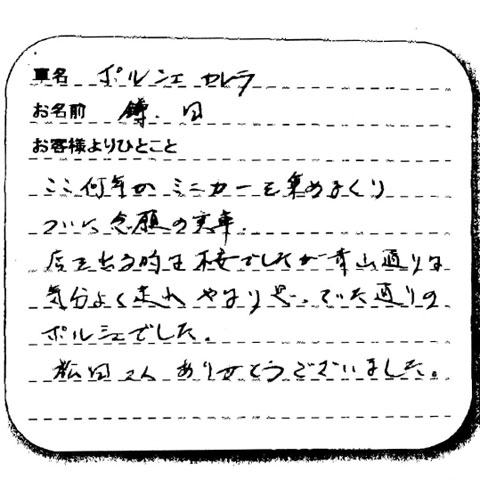 車名 ポルシェ カレラ
お名前 鐏.田
お客様よりひとこと
ここ何年かミニカーを集めまくり
ついに念願の実車.
店を出る時は不安でしたが青山通りは
気分よく走れ やはり思っていた通りの
ポルシェでした。
松田さん ありがとうございました。